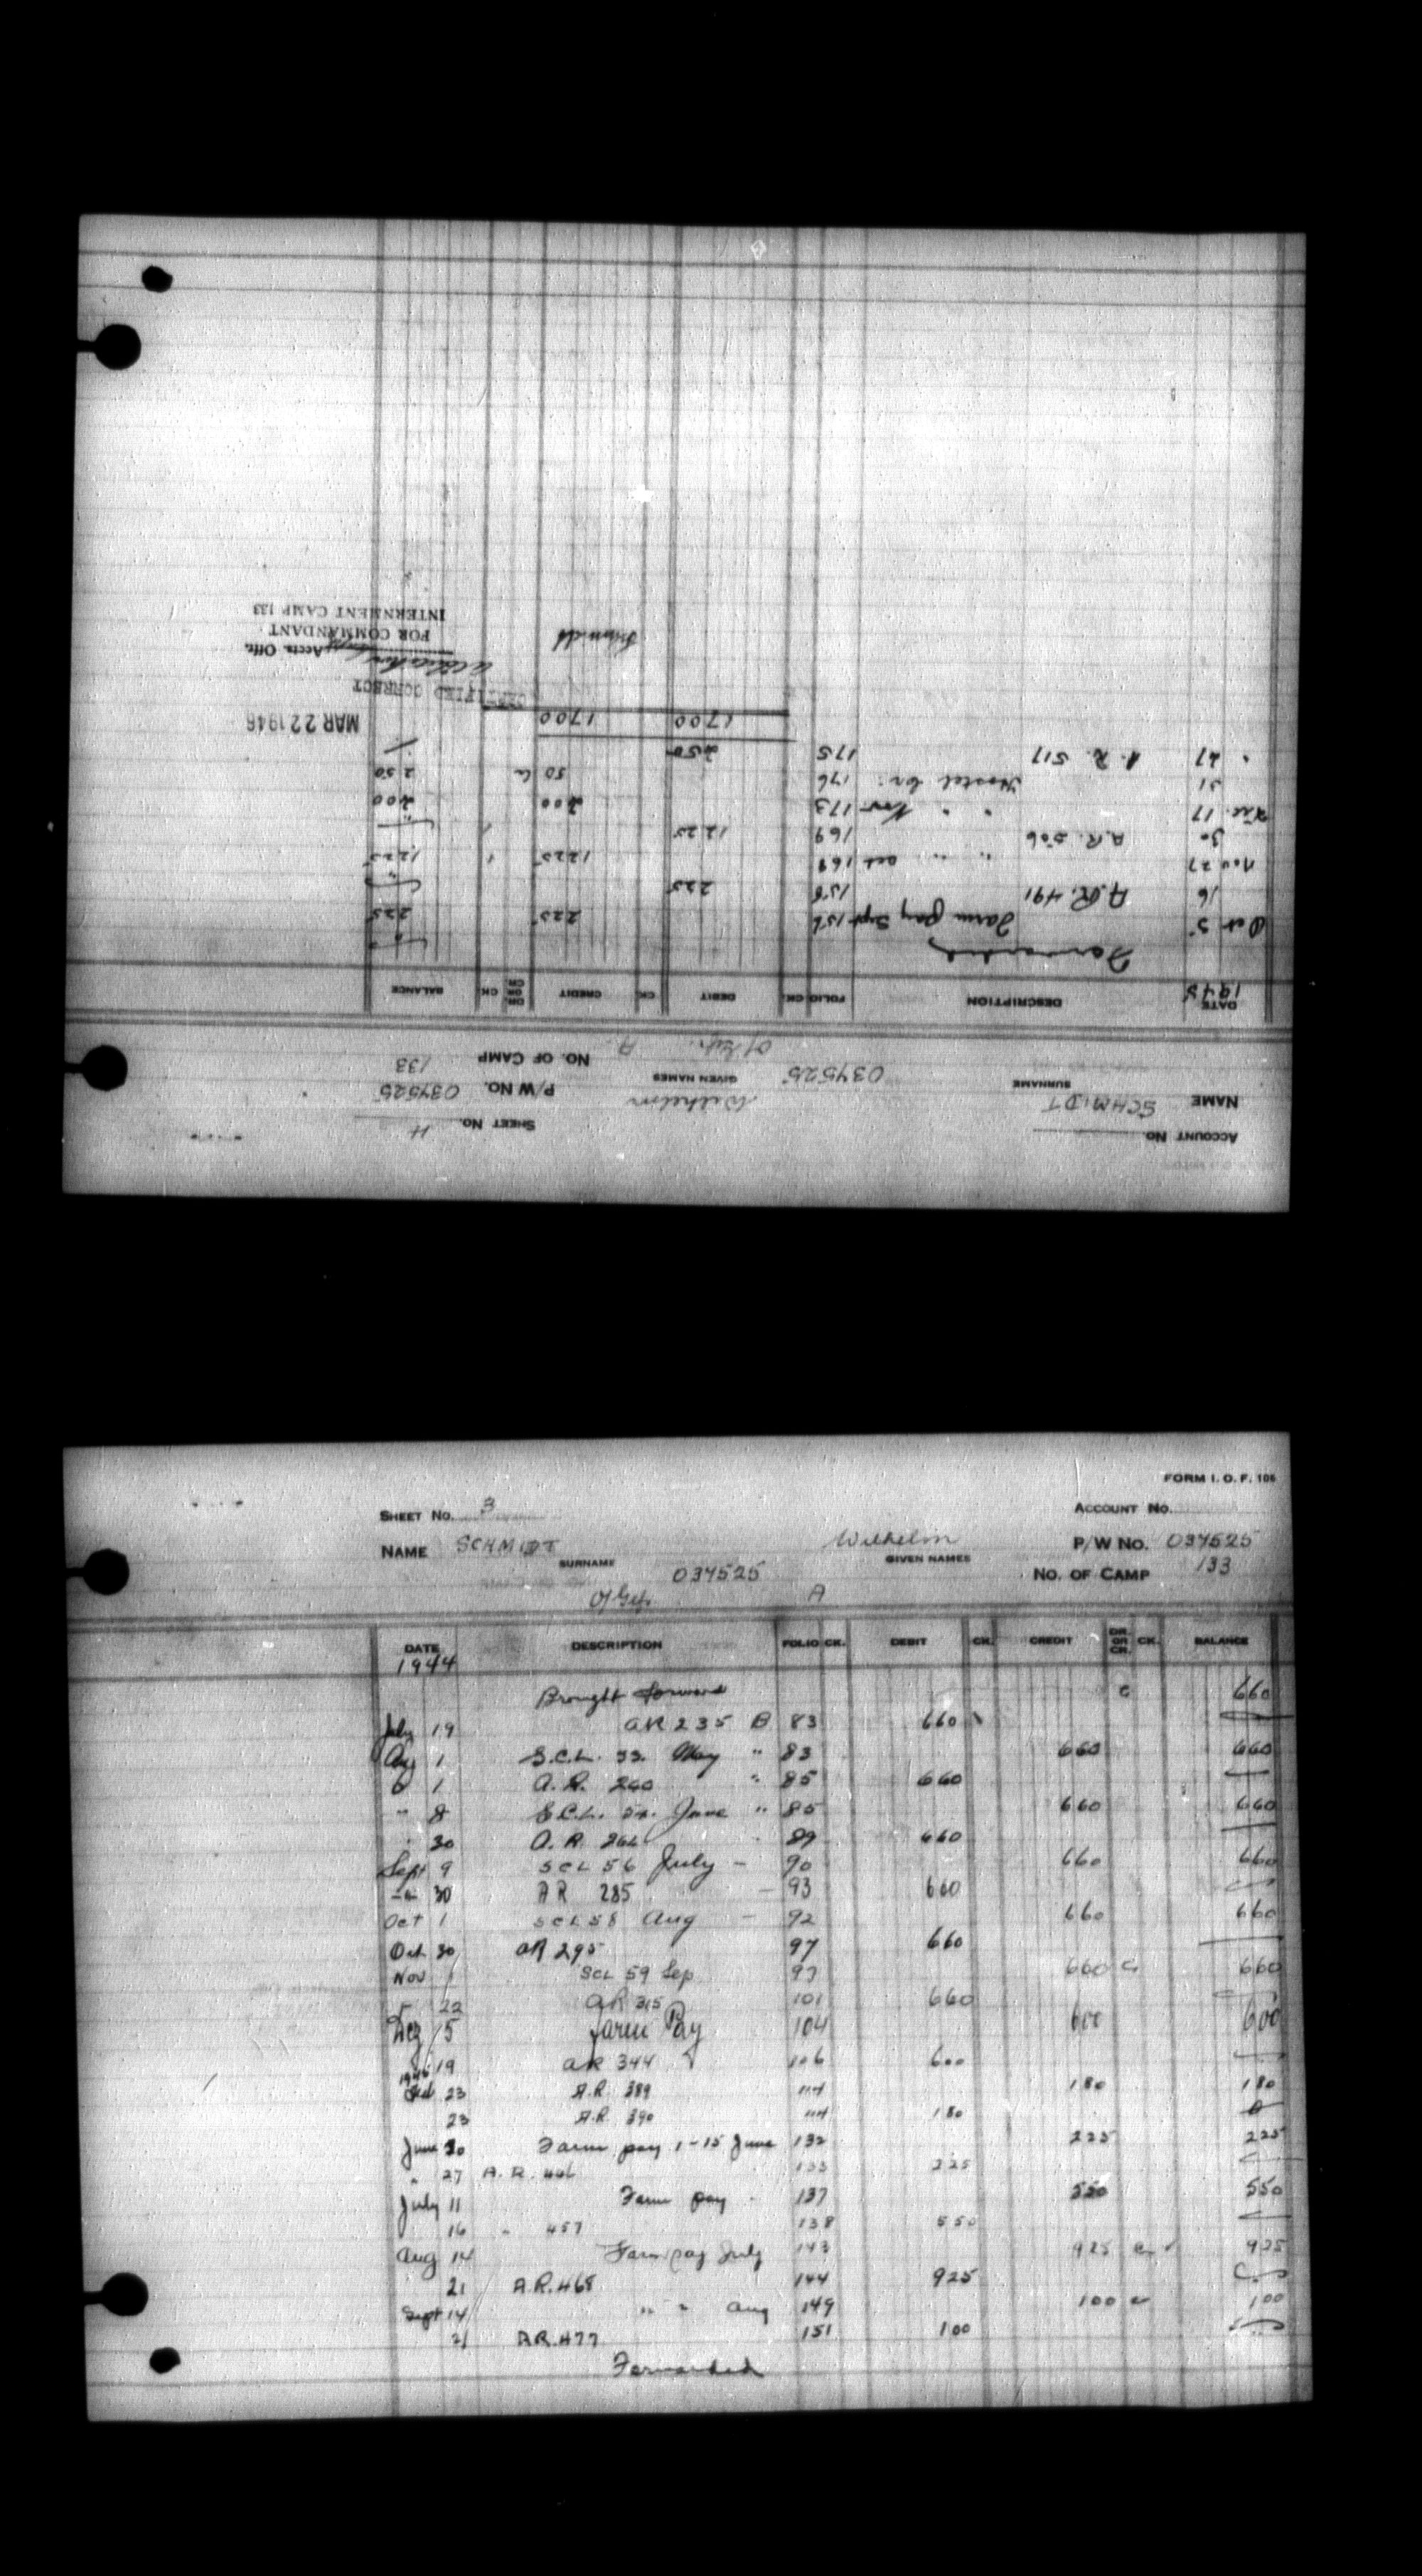 ACCOUNT No.
SHEET No. 4
NAME SCHMIDT Wilhelm P/W No. 034525
SURNAME 034525 GIVEN NAMES
A NO. OF CAMP 133
DATE DESCRIPTION FOLIO CK. DEBIT CK. CREDIT DR. OR CR. CK. BALANCE
1945
Forwarded
Oct 5 Farm pay Sept 156 225 225
16 A.R. 491 158 225
Nov 27 " " Oct 168 1225 1225
30 A.R. 506 169 1225
Dec. 17 " " Nov 173 200 200
31 Hostel 176 50 250
" 27 A.R. 517 175 250
1700 1700
MAR 22 1946
CERTIFIED CORRECT
Schmidt
Accts. Offr.
FOR COMMANDANT
INTERNMENT CAMP 133
FORM I. O. F. 106
SHEET No. 3 ACCOUNT No.
NAME SCHMIDT Wilhelm P/W No. 034525
SURNAME 034525 GIVEN NAMES
O/Gefr. A No. OF CAMP 133
DATE DESCRIPTION FOLIO CK. DEBIT CK. CREDIT DR. OR CR. CK. BALANCE
1944
Brought forward c 660
July 19 AR 235 B 83 660
Aug 1 S.C.L. 53. May " 83 660 660
1 A.R. 240 " 85 660
" 8 S.C.L. June " 85 660 660
30 A.R. 89 660
Sept 9 SCL 56 July - 90 660 660
30 AR 285 - 93 660
Oct 1 SCL 58 Aug - 92 660 660
Oct 30 AR 295 97 660
Nov 1 SCL 59 Sep 97 660 660
22 AR 315 101 660
Dez 5 Farm Pay 104 600 600
19 AR 344 106 600
1945
Feb 23 A.R. 389 114 180 180
23 A.R. 390 114 180
June 20 Farm pay 1-15 June 132 225 225
" 27 A.R. 133 225
July 11 Farm pay 137 550 550
16 " 457 138 550
Aug 14 Farm pay July 143 925 925
21 A.R. 468 144 925
Sept 14 " " Aug 149 100 100
21 A.R. 477 151 100
Forwarded